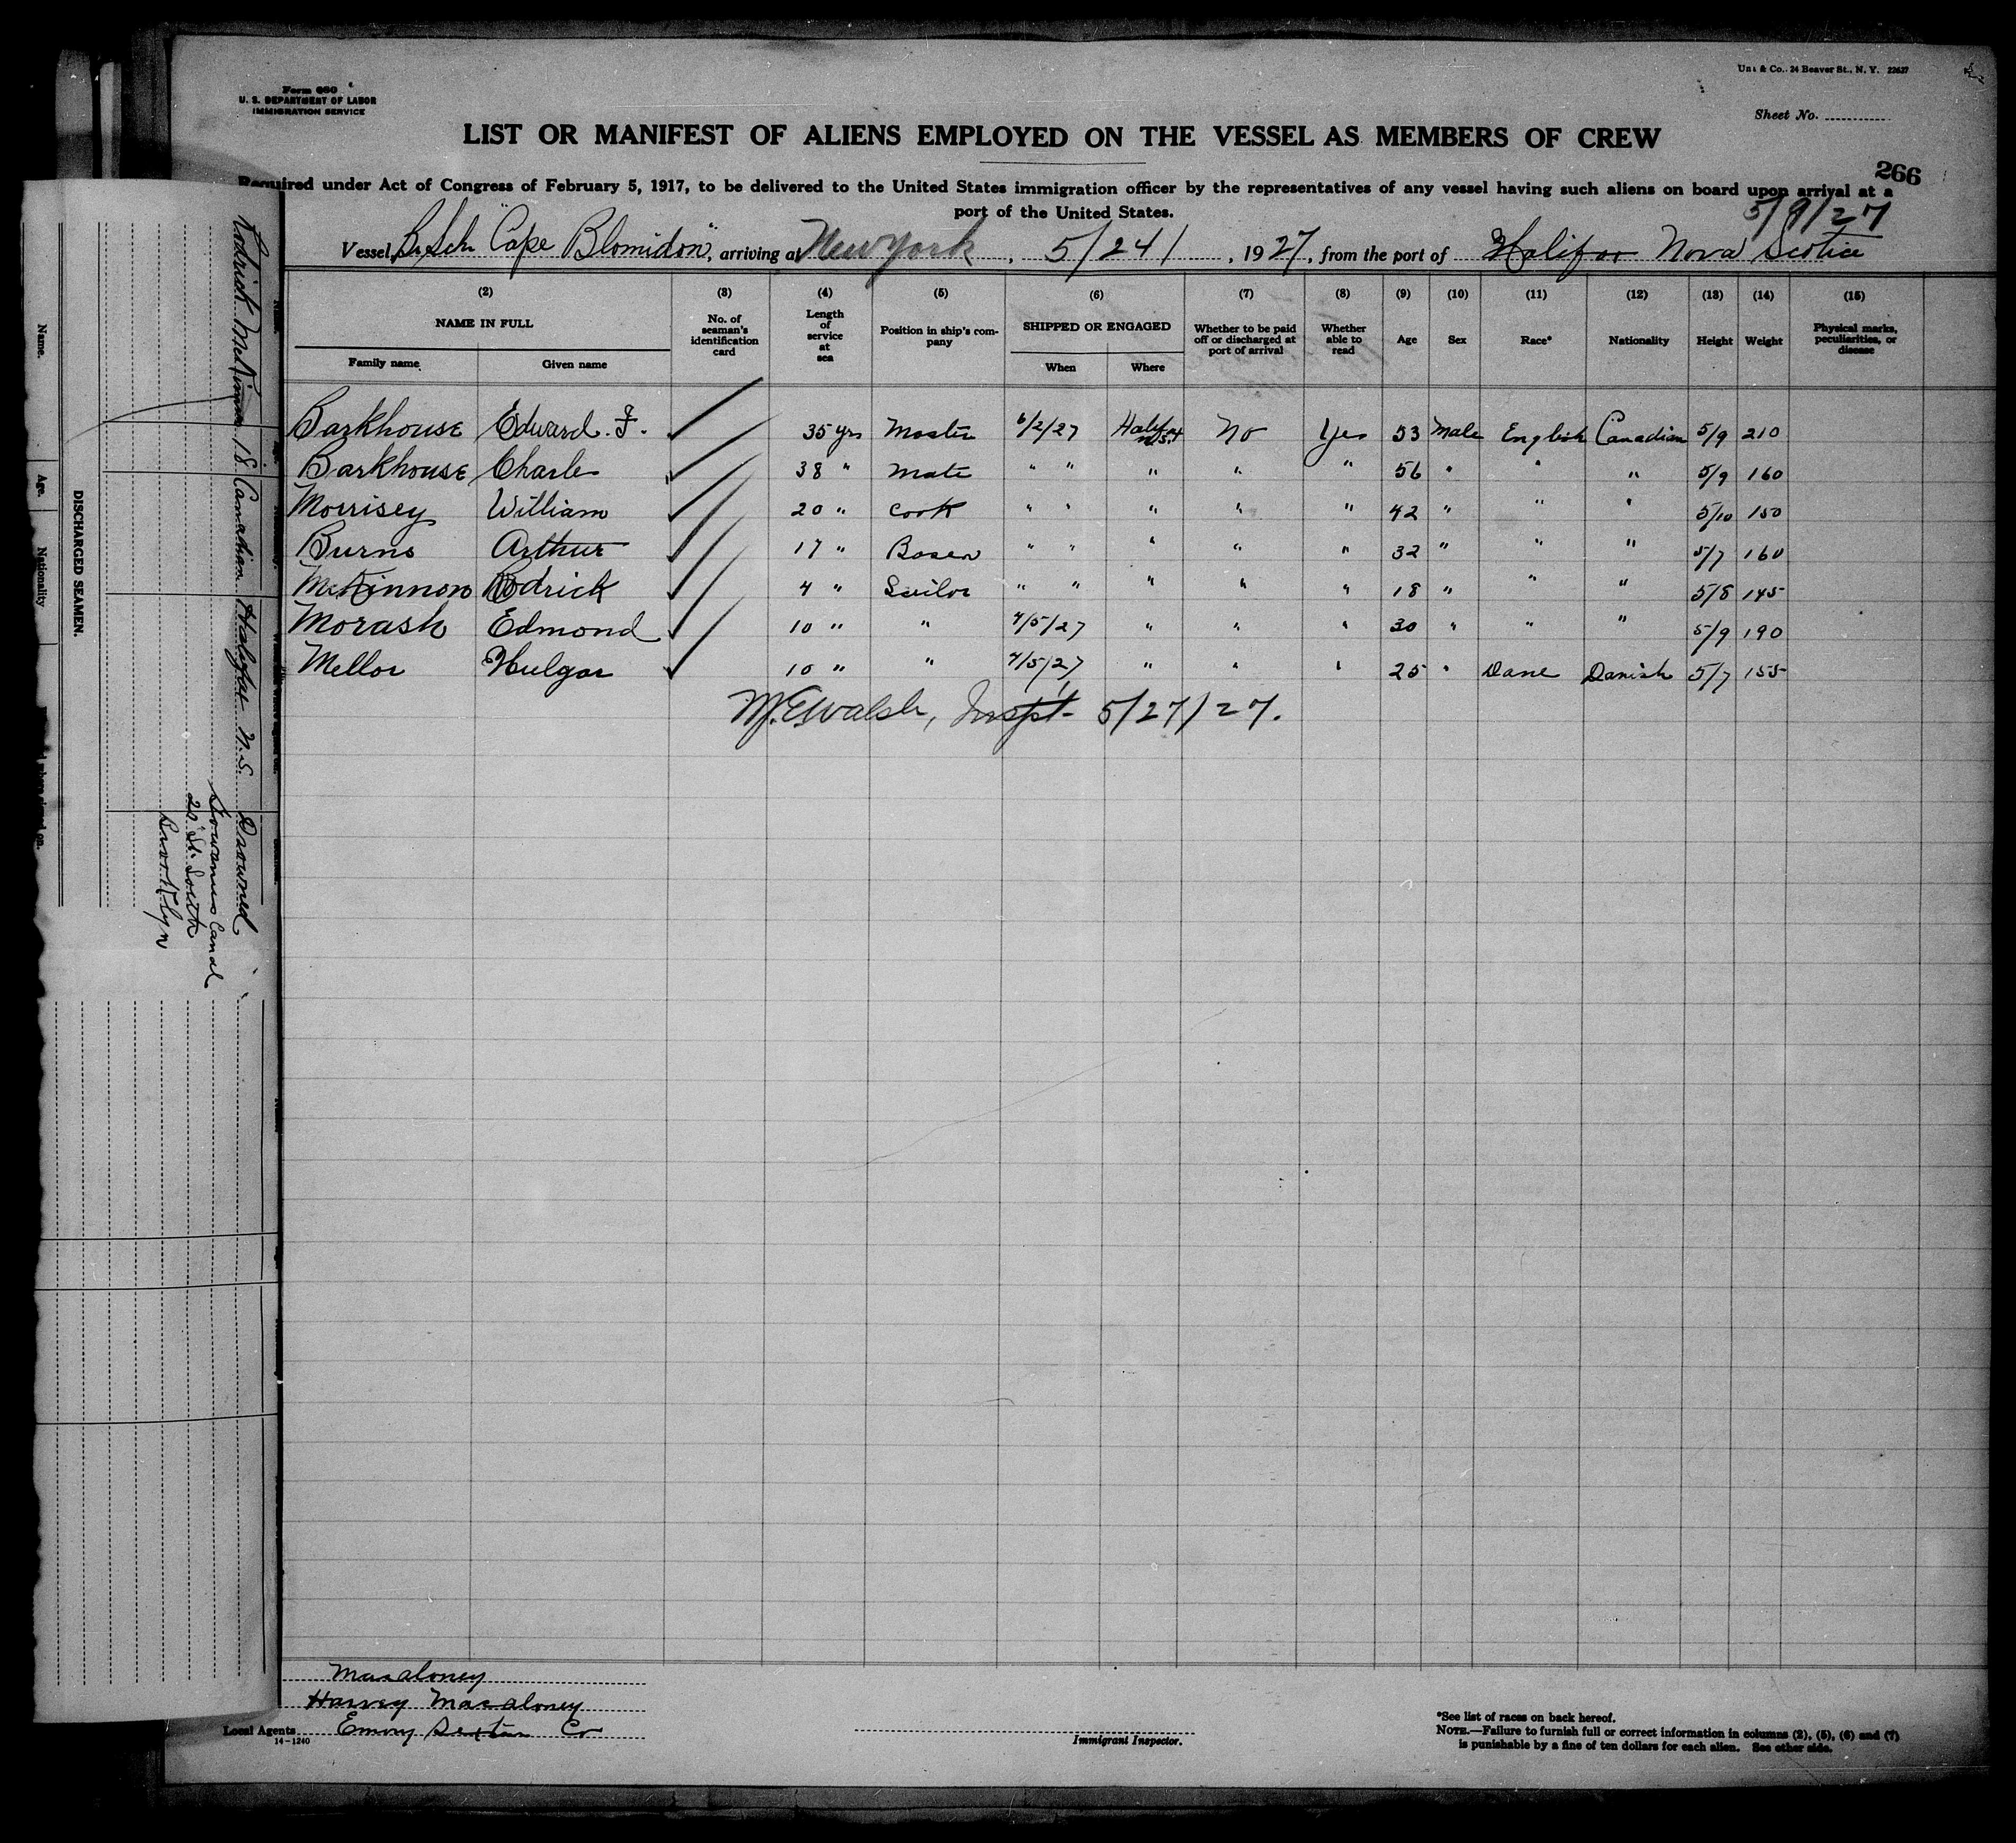 Form 680
U. S. DEPARTMENT OF LABOR
IMMIGRATION SERVICE
& Co., 24 Beaver St., N. Y. 22627
Sheet No.
LIST OR MANIFEST OF ALIENS EMPLOYED ON THE VESSEL AS MEMBERS OF CREW
266
Required under Act of Congress of February 5, 1917, to be delivered to the United States immigration officer by the representatives of any vessel having such aliens on board upon arrival at a
port of the United States.
5/9/27
Vessel B. Sch. "Cape Blomidon", arriving at New York, 5/24/, 1927, from the port of Halifax Nova Scotia
(2) (3) (4) (5) (6) (7) (8) (9) (10) (11) (12) (13) (14) (15)
NAME IN FULL
Family name Given name
No. of seaman's identification card
Length of service at sea
Position in ship's company
SHIPPED OR ENGAGED
When Where
Whether to be paid off or discharged at port of arrival
Whether able to read
Age Sex Race* Nationality Height Weight
Physical marks, peculiarities, or disease
Barkhouse Edward. F. 35 yrs Master 6/2/27 Halifax No Yes 53 Male English Canadian 5/9 210
Barkhouse Charle 38 " Mate " " " " " 56 " " " 5/9 160
Morrisey William 20 " Cook " " " " " 42 " " " 5/10 150
Burns Arthur 17 " Bosen " " " " " 32 " " " 5/7 160
McKinnon Rodrick 4 " Sailor " " " " " 18 " " " 5/8 145
Morash Edmond 10 " " 4/5/27 " " " 30 " " " 5/9 190
Mellor Hulgar 10 " " 4/5/27 " " " 25 " Dane Danish 5/7 155
M.E. Walsh, Inspt- 5/27/27.
DISCHARGED SEAMEN.
Name. Age. Nationality
Rodrick McKinnon 18 Canadian Halifax N.S. Drowned
Gowanus Canal
20 St. South
Brooklyn
Macaloney
Harvey Macaloney
Local Agents Emory Sexton Co
14—1240
Immigrant Inspector.
*See list of races on back hereof.
NOTE.—Failure to furnish full or correct information in columns (2), (5), (6) and (7)
is punishable by a fine of ten dollars for each alien. See other side.